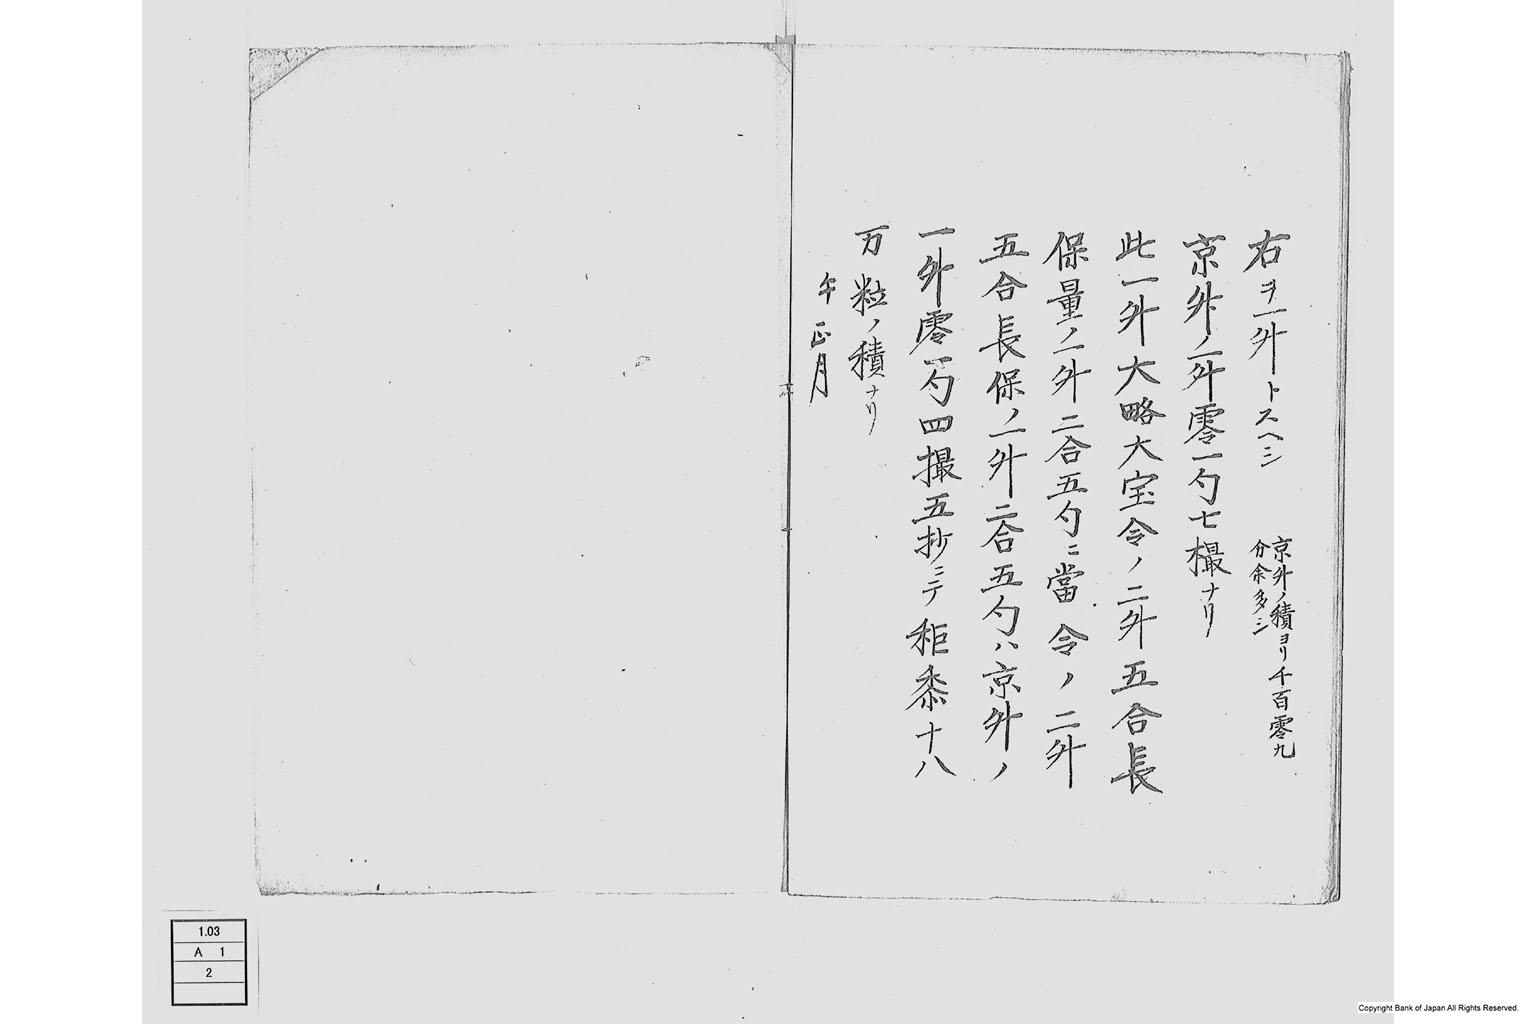 右ヲ一升トスヘシ
京升ノ積ヨリ千百零九
分余多シ
京升ノ一升零一勺七撮ナリ
此一升大略大宝令ノ二升五合長
保量ノ一升二合五勺ニ當令ノ二升
五合長保ノ一升二合五勺ハ京升ノ
一升零一勺四撮五抄ニテ秬黍十八
万粒ノ積ナリ
午正月
1.03
A 1
2
Copyright Bank of Japan All Rights Reserved.